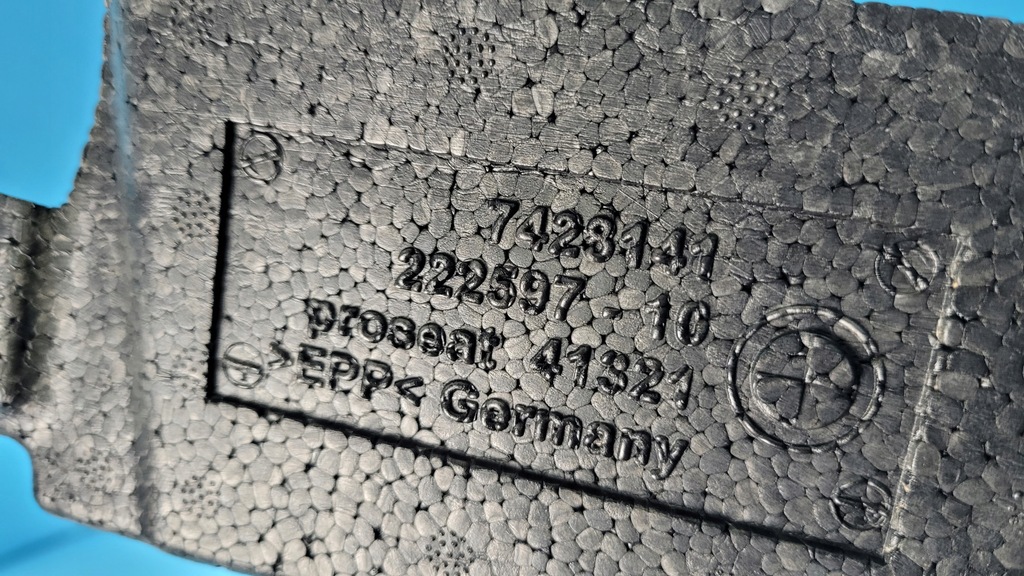 7423141
222597 - 10
proseat 41321
>EPP< Germany